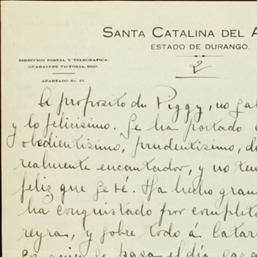 SANTA CATALINA DEL A
ESTADO DE DURANGO.
DIRECCION POSTAL Y TELEGRAFICA:
GUADALUPE VICTORIA, DGO.
APARTADO No.
2
A proposito de Piggy, no sab
y lo felicisimo. Se ha portado
obedientisimo, prudentisimo, d
realmente encantador, y no ten
feliz que esté. Ha hecho gran
ha conquistado por completo
reyras, y sobre todo á Catar